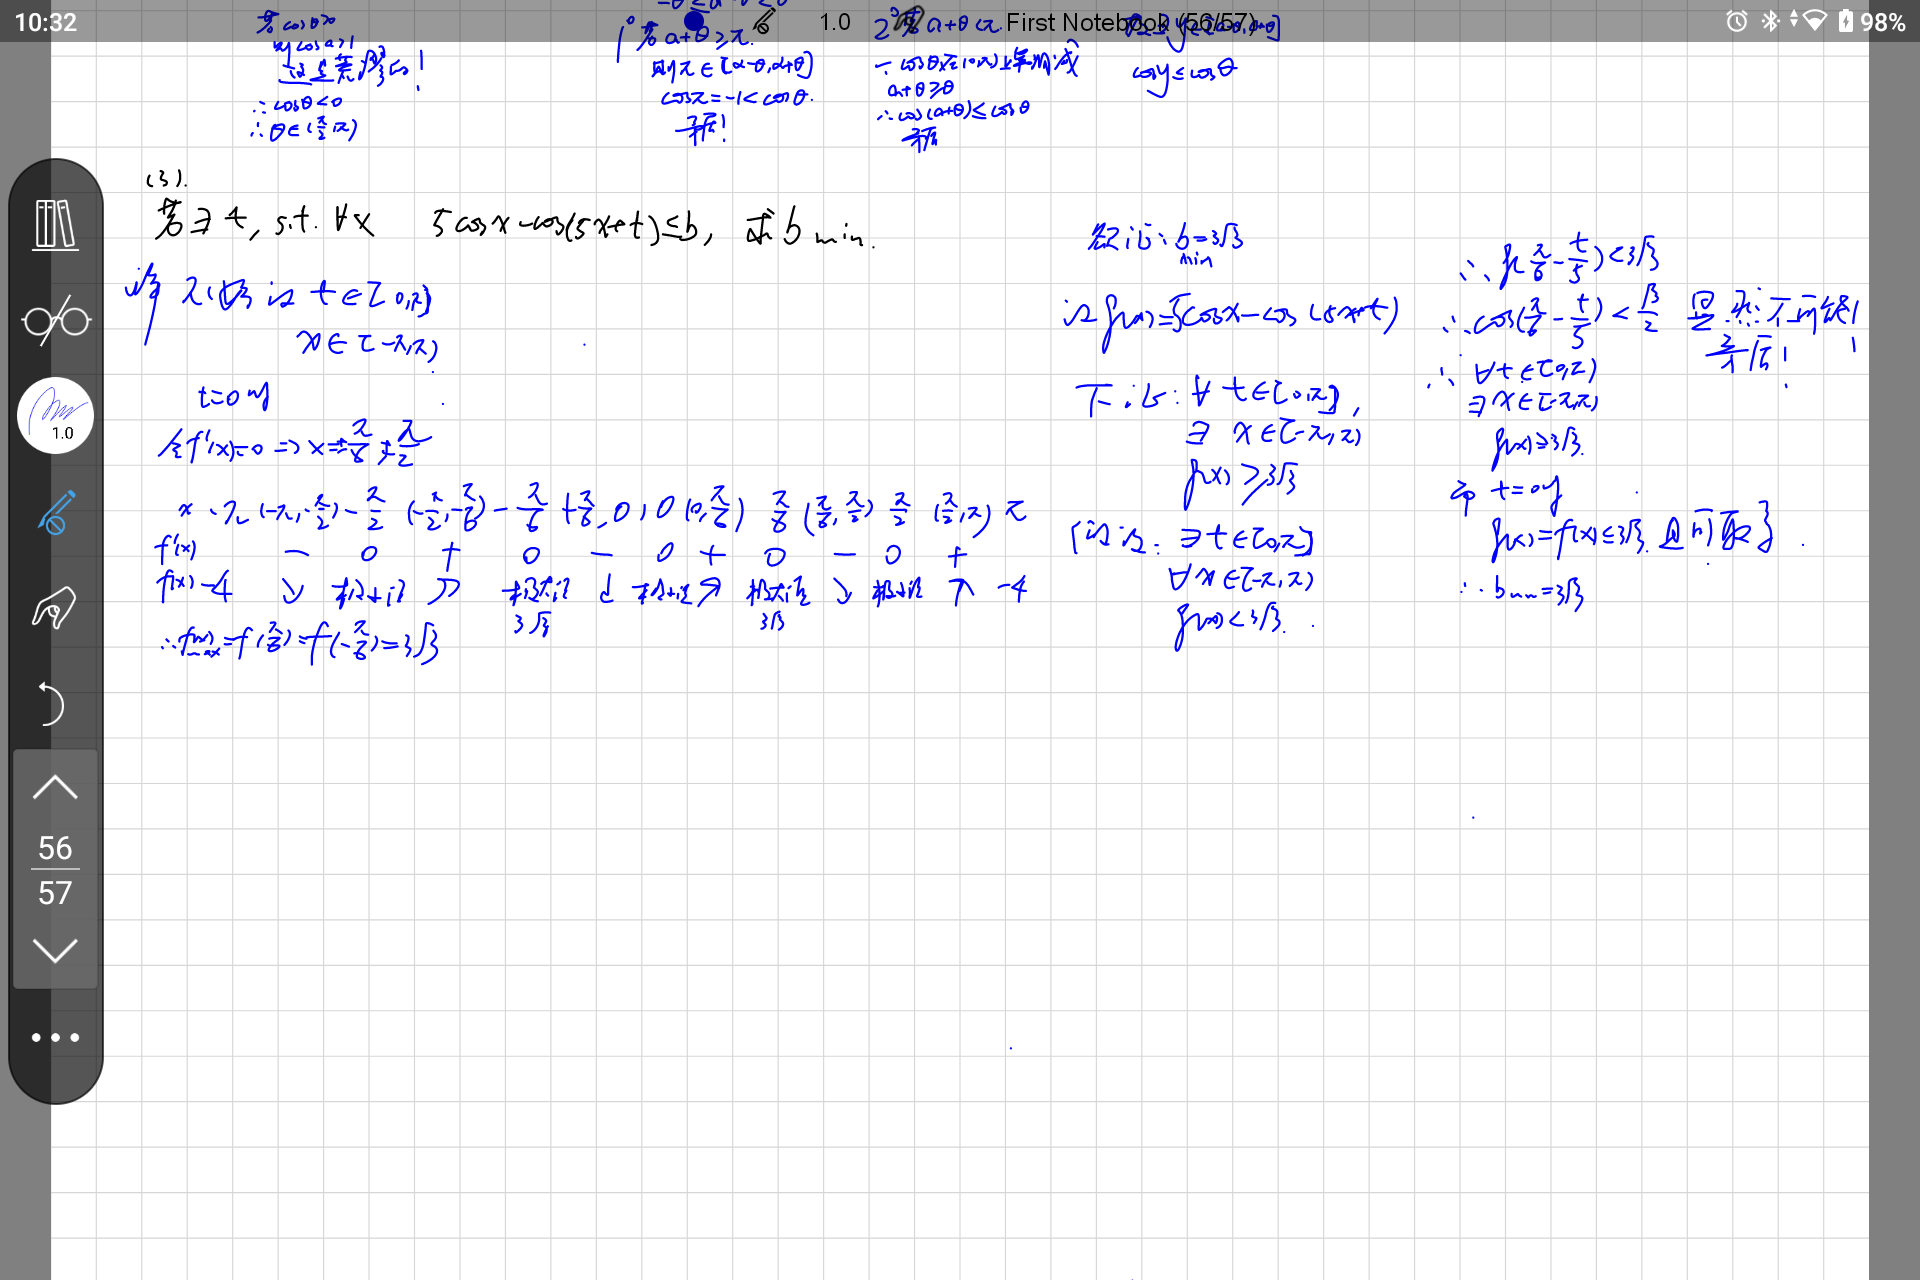 10:32
1.0
First Notebook (56/57)
98%
若cosθ>0
则cosa>1
这是不可能的!
∴cosθ<0
∴θ∈(π/2,π)
1° 若a+θ≥π.
则π∈[a-θ,a+θ]
cosπ=-1<cosθ.
矛盾!
2°若a+θ<π.
∵cosθ在(0,π)上单调减
a+θ≥θ
∴cos(a+θ)≤cosθ
矛盾
cosy≤cosθ
(3).
若∃t, s.t. ∀x 5cosx-cos(5x+t)≤b, 求b min.
解 不妨设 t∈[0,π]
x∈[-π,π)
t=0时
令f'(x)=0 => x=±π/6,±π/2
x -π (-π,-π/2) -π/2 (-π/2,-π/6) -π/6 (-π/6,0) 0 (0,π/6) π/6 (π/6,π/2) π/2 (π/2,π) π
f'(x) - 0 + 0 - 0 + 0 - 0 +
f(x) -4 ↘ 极小值 ↗ 极大值 ↓ 极小值 ↗ 极大值 ↘ 极小值 ↗ -4
3√3 3√3
∴f(x)max=f(π/6)=f(-π/6)=3√3
1.0
56
57
欲证: b min=3√3
记g(x)=5cosx-cos(5x+t)
下证: ∀t∈[0,π],
∃x∈[-π,π)
g(x)≥3√3
假设: ∃t∈[0,π]
∀x∈[-π,π)
g(x)<3√3.
∴g(π/6-t/5)<3√3
∴cos(π/6-t/5)<√3/2 显然不可能!
矛盾!
∴∀t∈[0,π)
∃x∈[-π,π)
g(x)≥3√3.
而 t=0时
g(x)=f(x)≤3√3.且可取
∴bmin=3√3